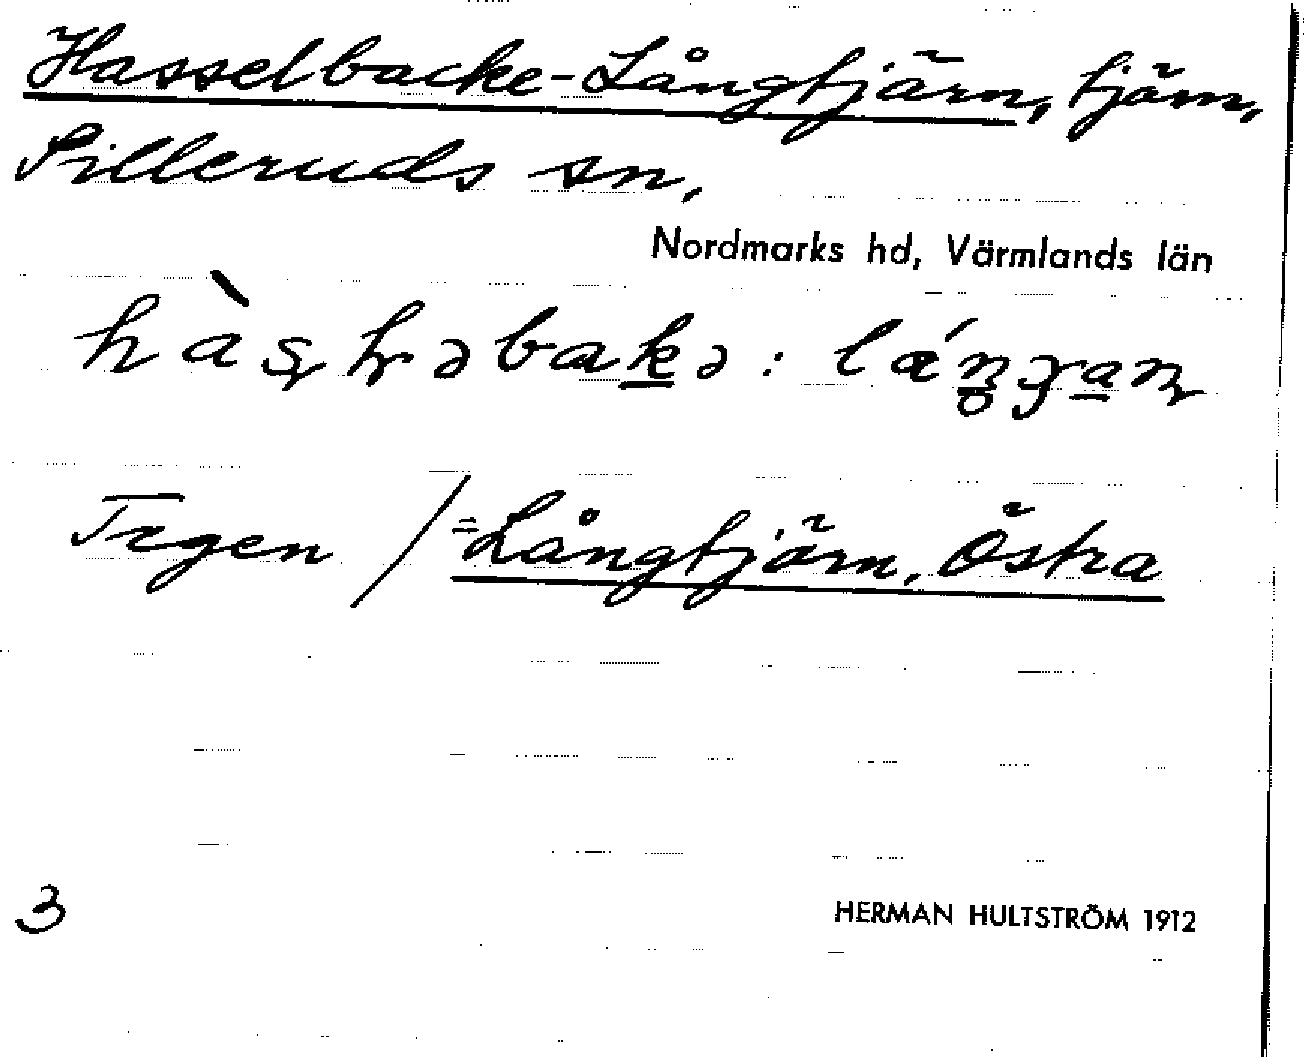 Hasselbacke-Långtjärn, tjärn,
Silleruds sn,
Nordmarks hd, Värmlands län
Tegen / = Långtjärn, Östra
3
HERMAN HULTSTRÖM 1912